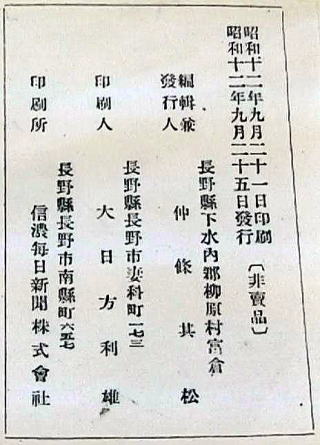 昭和十二年九月二十一日印刷
昭和十二年九月二十五日發行
〔非賣品〕
長野縣下水內郡柳原村富倉
編輯兼
發行人
仲條其松
長野縣長野市妻科町一七三
印刷人
大日方利雄
長野縣長野市南縣町六五七
印刷所
信濃每日新聞株式會社